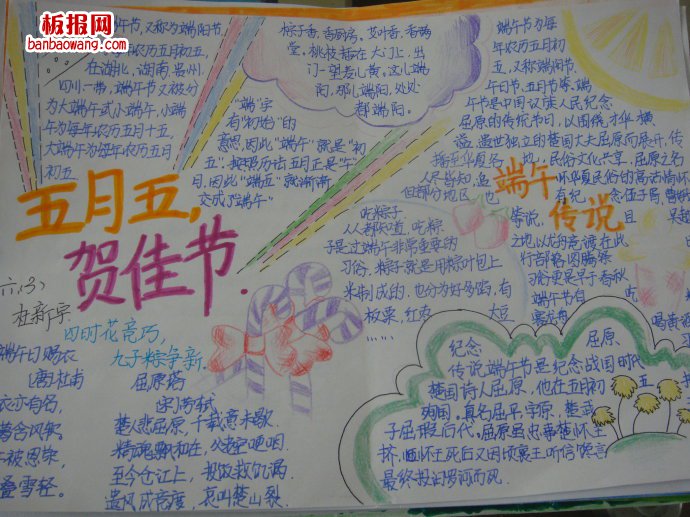 板报网
banbaowang.com
午节,又称为端阳节,
年农历五月初五,
在湖北,湖南,贵州,
四川一带,端午节又被分
为大端午或小端午,小端
午为每年农历五月十五,
大端午为每年农历五月
初五
"端"字
有"初始"的
意思,因此"端午"就是"初
五".按照历法五月正是"午"
月,因此"端五"就渐渐
变成了"端午"
粽子香,香厨房.艾叶香,香满
堂.桃枝插在大门上,出
门一望麦儿黄.这儿端
阳,那儿端阳,处处
都端阳.
端午节为每
年农历五月初
五,又称端阳节,
午日节,五月节等.端
午节是中国汉族人民纪念
屈原的传统节日,以围绕才华横
溢、遗世独立的楚国大夫屈原而展开,传
播至华夏各地,民俗文化共享,屈原之名
人尽皆知,追
但部分地区也
有纪念伍子胥,曹娥
等说.
端午
传说
五月五,
贺佳节.
吃粽子
人人都知道,吃粽
子是过端午非常重要的
习俗,粽子就是用粽叶包上
米制成的,也分为好多馅,有
板栗,红枣
大豆
……
之地,以龙的
行部落图腾祭
习俗更是早于春秋
端午节有
赛龙舟
吃
喝雄黄
六(3)
杜新宇
四时花竞巧,
九子粽争新.
端午日赐衣
(唐)杜甫
衣亦有名,
被恩荣.
叠雪轻.
屈原塔
宋 苏轼
楚人悲屈原,千载意未歇.
精魂飘何在,父老空哽咽.
至今仓江上,投饭救饥渴.
遗风成竞渡,哀叫楚山裂.
纪念
屈原
传说,端午节是纪念战国时代
楚国诗人屈原,他在五月初
五
殉国.真名屈平,字原,楚武
子屈瑕后代.屈原虽忠事楚怀王
怀王死后又因顷襄王听信谗言
最终投汨罗河而死.